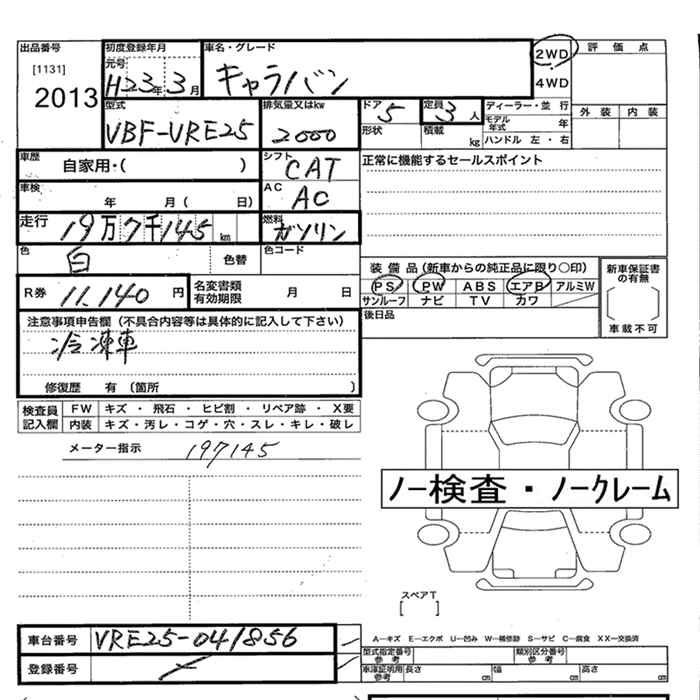 出品番号
[1131]
2013
初度登録年月
元号
H23年3月
車名・グレード
キャラバン
2WD
4WD
評価点
外装 内装
型式
VBF-VRE25
排気量又はkw
2000
ドア 5
形状
定員 3人
積載 kg
ディーラー・並行
モデル年式 年
ハンドル 左・右
車歴
自家用・( )
シフト
CAT
正常に機能するセールスポイント
車検
年 月( 日)
AC
AC
走行
19万7千145km
燃料
ガソリン
色
白
色替
色コード
R券 11,140円
名変書類
有効期限 月 日
装備品(新車からの純正品に限り○印)
PS PW ABS エアB アルミW
サンルーフ ナビ TV カワ
新車保証書
の有無
車載不可
後日品
注意事項申告欄(不具合内容等は具体的に記入して下さい)
冷凍車
修復歴 有(箇所 )
検査員
記入欄
FW キズ・飛石・ヒビ割・リペア跡・X要
内装 キズ・汚レ・コゲ・穴・スレ・キレ・破レ
メーター指示 197145
ノー検査・ノークレーム
スペアT
[ ]
車台番号 VRE25-041856
登録番号
A―キズ E―エクボ U―凹み W―補修跡 S―サビ C―腐食 XX―交換済
型式指定番号
参考
類別区分番号
参考
車庫証明用
参考
長さ cm 幅 cm 高さ cm